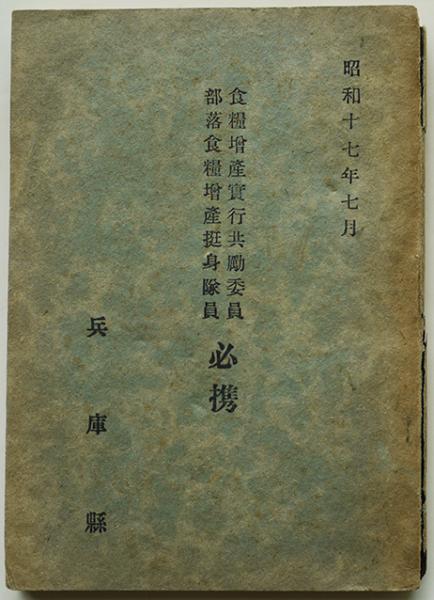 昭和十七年七月
食糧增產實行共勵委員
部落食糧增產挺身隊員
必携
兵庫縣